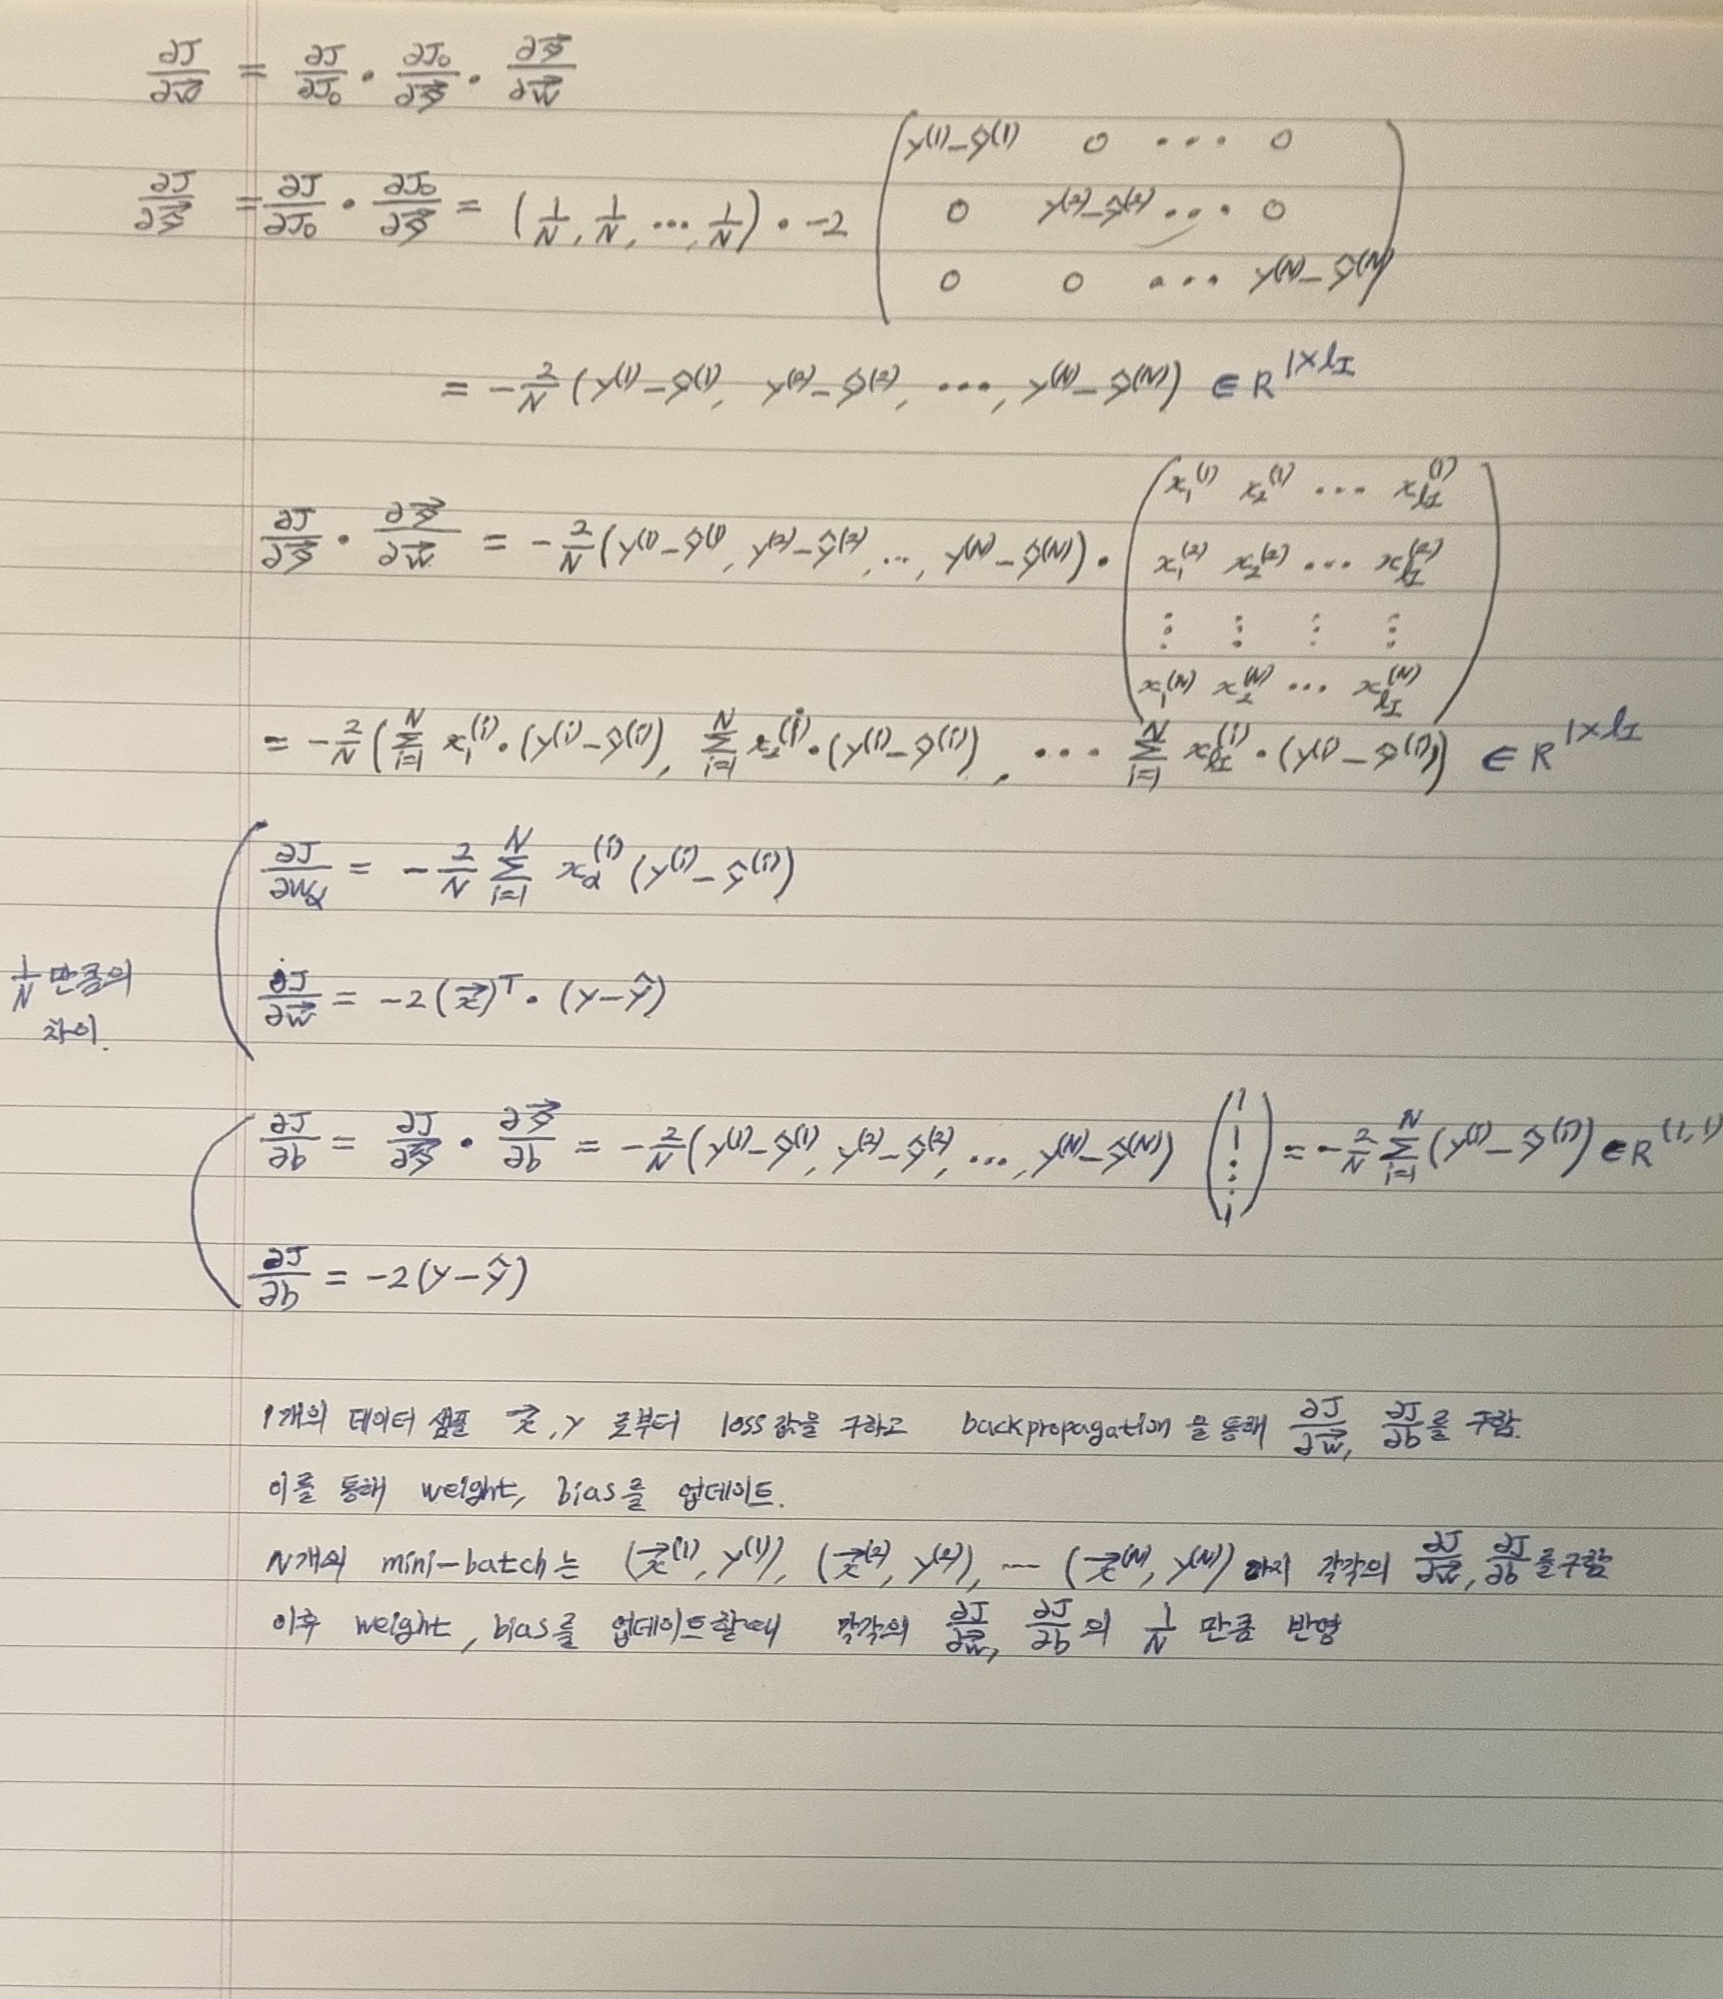 ∂J/∂w⃗ = ∂J/∂J₀ · ∂J₀/∂ŷ⃗ · ∂ŷ⃗/∂w⃗
∂J/∂ŷ⃗ = ∂J/∂J₀ · ∂J₀/∂ŷ⃗ = (1/N, 1/N, ..., 1/N) · -2 ( y⁽¹⁾-ŷ⁽¹⁾ 0 ... 0
0 y⁽²⁾-ŷ⁽²⁾ ... 0
0 0 ... y⁽ᴺ⁾-ŷ⁽ᴺ⁾ )
= -2/N (y⁽¹⁾-ŷ⁽¹⁾, y⁽²⁾-ŷ⁽²⁾, ..., y⁽ᴺ⁾-ŷ⁽ᴺ⁾) ∈ R^{1×l_I}
∂J/∂ŷ⃗ · ∂ŷ⃗/∂w⃗ = -2/N (y⁽¹⁾-ŷ⁽¹⁾, y⁽²⁾-ŷ⁽²⁾, ..., y⁽ᴺ⁾-ŷ⁽ᴺ⁾) · ( x₁⁽¹⁾ x₂⁽¹⁾ ... x_{l_I}⁽¹⁾
x₁⁽²⁾ x₂⁽²⁾ ... x_{l_I}⁽²⁾
⋮ ⋮ ⋮ ⋮
x₁⁽ᴺ⁾ x₂⁽ᴺ⁾ ... x_{l_I}⁽ᴺ⁾ )
= -2/N (Σ_{i=1}^{N} x₁⁽ⁱ⁾·(y⁽ⁱ⁾-ŷ⁽ⁱ⁾), Σ_{i=1}^{N} x₂⁽ⁱ⁾·(y⁽ⁱ⁾-ŷ⁽ⁱ⁾), ... Σ_{i=1}^{N} x_{l_I}⁽ⁱ⁾·(y⁽ⁱ⁾-ŷ⁽ⁱ⁾)) ∈ R^{1×l_I}
∂J/∂w_α = -2/N Σ_{i=1}^{N} x_α⁽ⁱ⁾ (y⁽ⁱ⁾-ŷ⁽ⁱ⁾)
1/N 만큼의
차이.
∂J/∂w⃗ = -2(x⃗)ᵀ · (y-ŷ)
∂J/∂b = ∂J/∂ŷ⃗ · ∂ŷ⃗/∂b = -2/N (y⁽¹⁾-ŷ⁽¹⁾, y⁽²⁾-ŷ⁽²⁾, ..., y⁽ᴺ⁾-ŷ⁽ᴺ⁾) (1 1 ⋮ 1) = -2/N Σ_{i=1}^{N} (y⁽ⁱ⁾-ŷ⁽ⁱ⁾) ∈ R^{(1,1)}
∂J/∂b = -2(y-ŷ)
1개의 데이터 샘플 x⃗, y 로부터 loss값을 구하고 backpropagation을 통해 ∂J/∂w⃗, ∂J/∂b를 구함.
이를 통해 weight, bias를 업데이트.
N개의 mini-batch는 (x⃗⁽¹⁾, y⁽¹⁾), (x⃗⁽²⁾, y⁽²⁾), ... (x⃗⁽ᴺ⁾, y⁽ᴺ⁾) 까지 각각의 ∂J/∂w⃗, ∂J/∂b를 구함
이후 weight, bias를 업데이트할때 각각의 ∂J/∂w⃗, ∂J/∂b의 1/N 만큼 반영